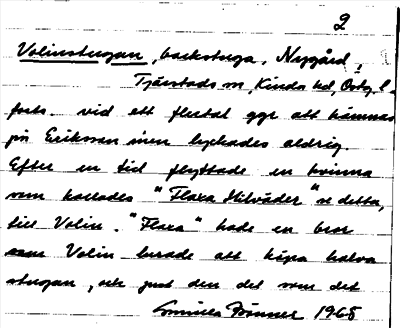 2
Volinstugan, backstuga, Nygård,
Tjärstads sn, Kinda hd, Östg. l.
forts. vid ett flertal ggr att hämnas
på Eriksson men lyckades aldrig.
Efter en tid flyttade en kvinna
som kallades "Flaxa Milväder" se detta,
till Volin. "Flaxa" hade en bror
som Volin lovade att köpa halva
stugan, och just den del som det
Gunilla Jönsson 1965